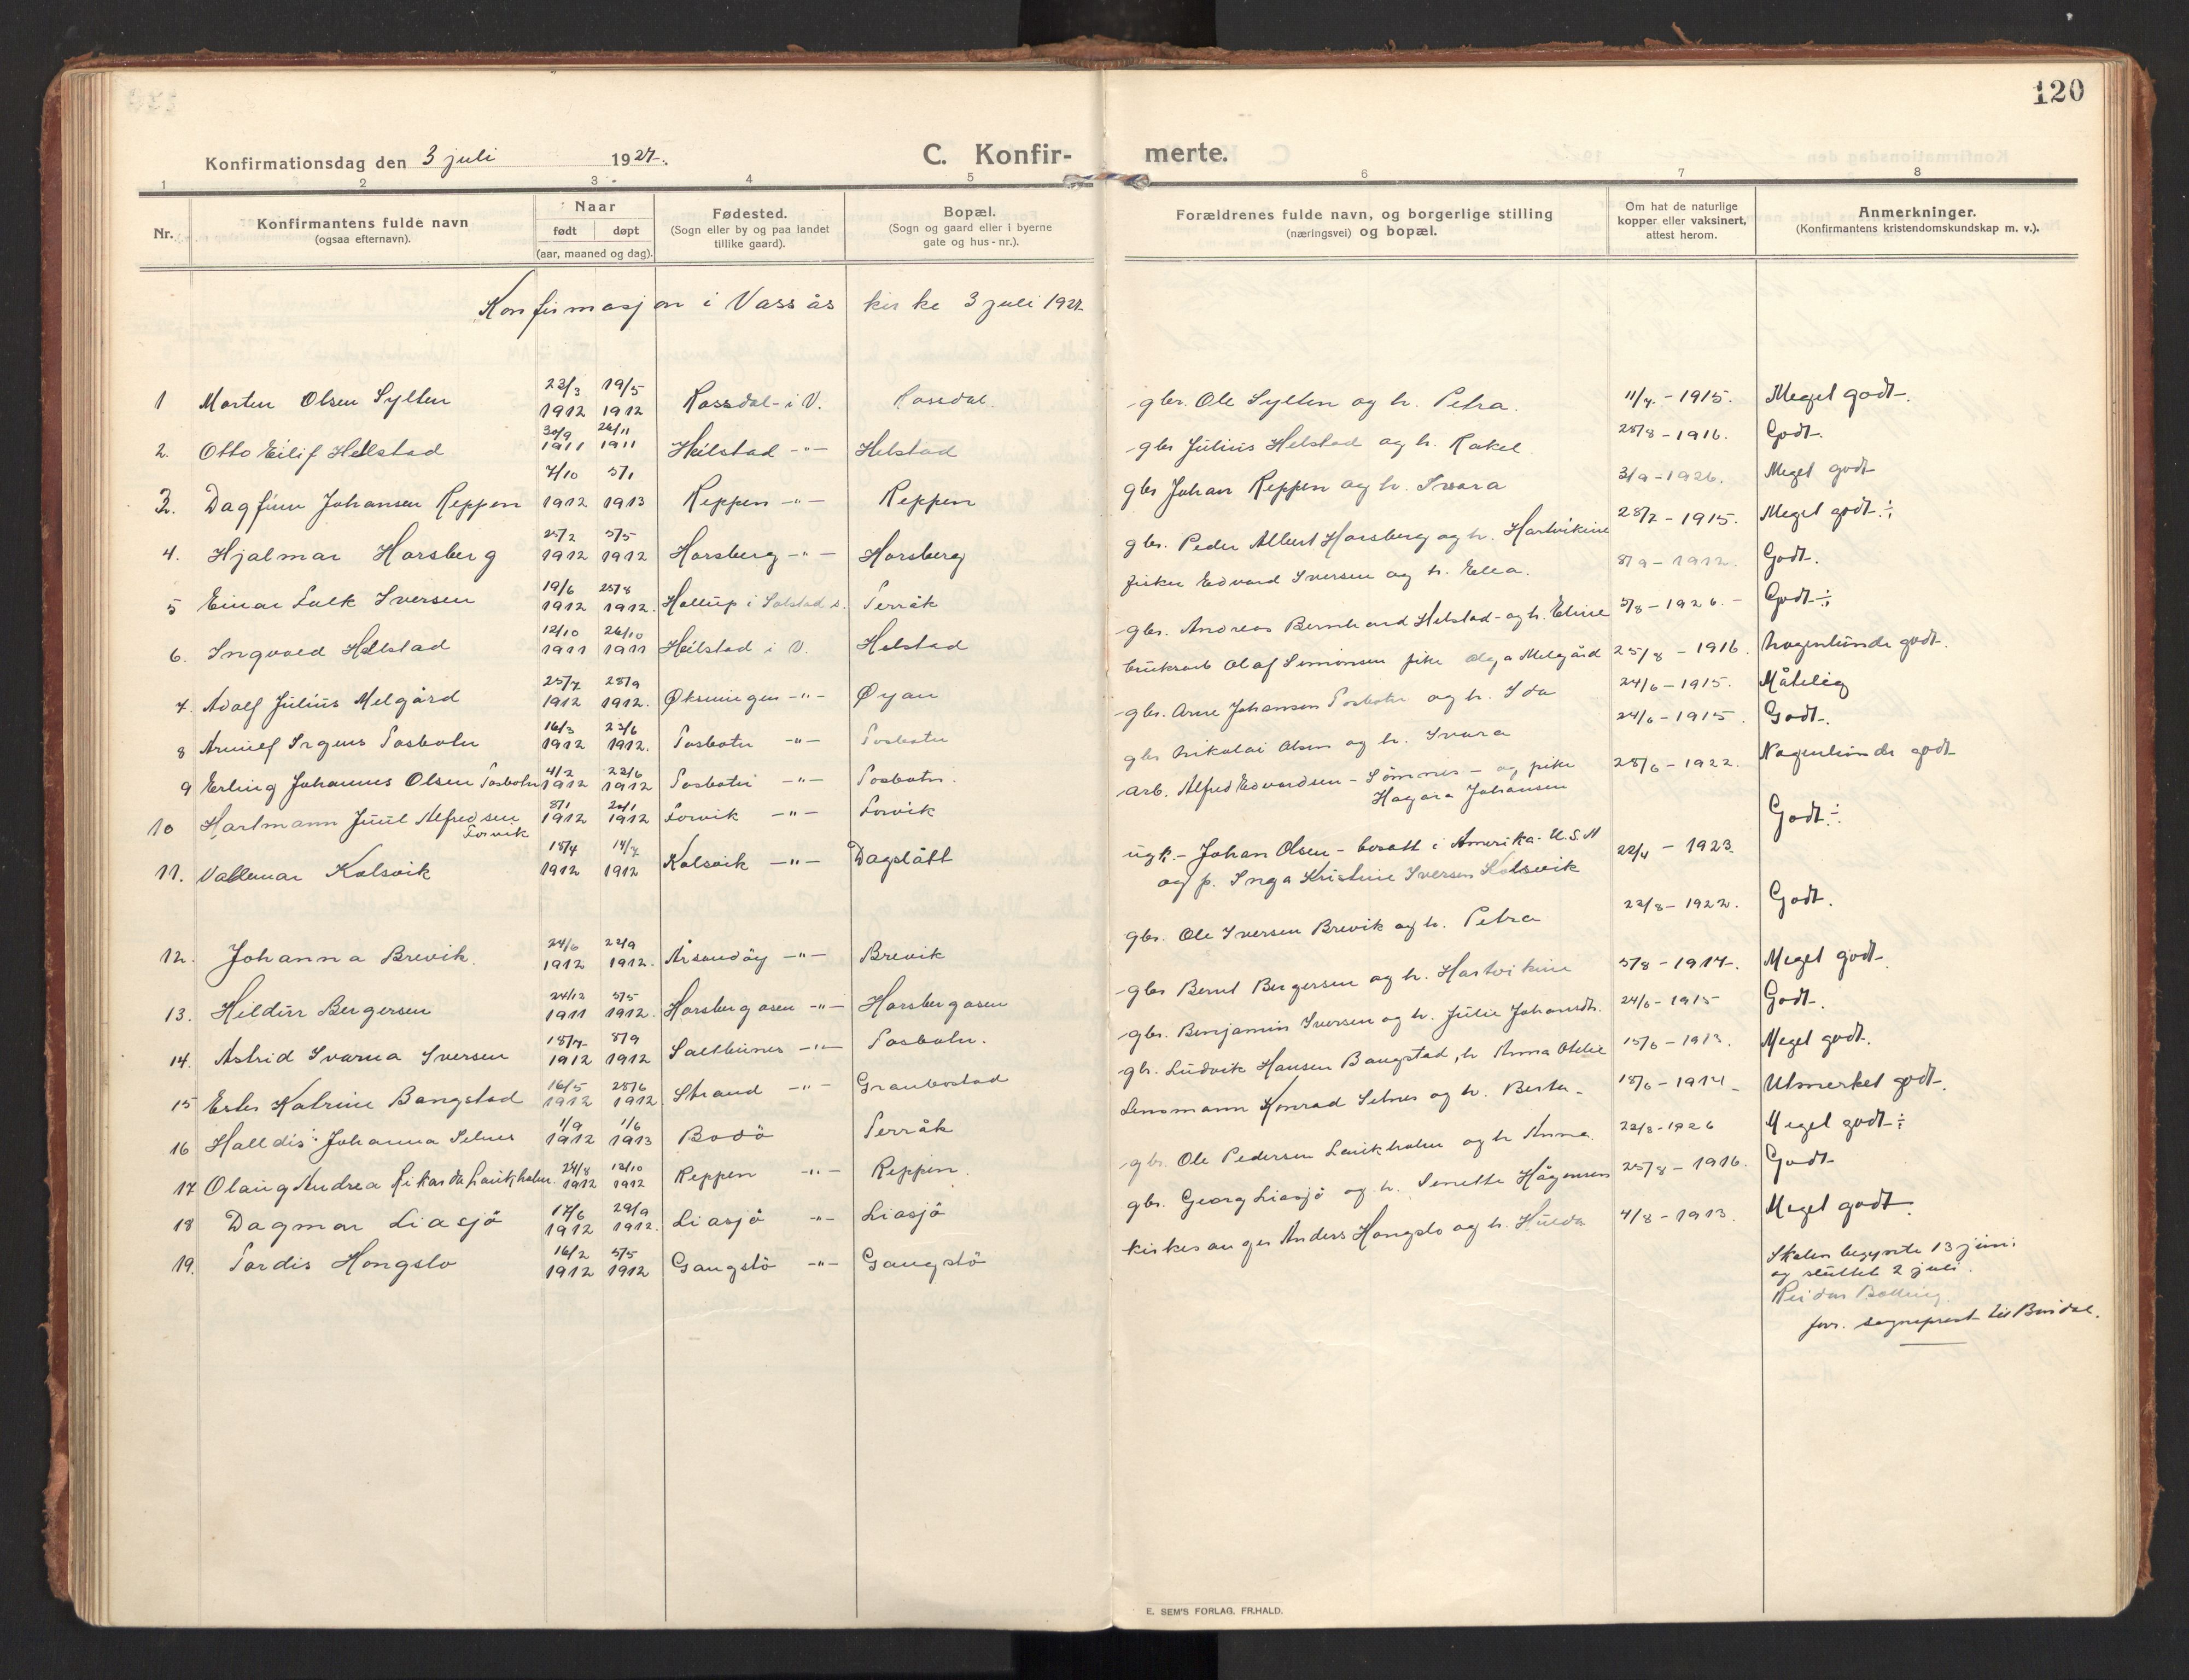 120
Konfirmationsdag den 3 juli 1927.
C. Konfir- merte.
1 2 3 4 5 6 7 8
Nr.
Konfirmantens fulde navn
(ogsaa efternavn).
Naar
født døpt
(aar, maaned og dag).
Fødested.
(Sogn eller by og paa landet
tillike gaard).
Bopæl.
(Sogn og gaard eller i byerne
gate og hus-nr.).
Forældrenes fulde navn, og borgerlige stilling
(næringsvei) og bopæl.
Om hat de naturlige
kopper eller vaksinert,
attest herom.
Anmerkninger.
(Konfirmantens kristendomskundskap m. v.).
Konfirmasjon i Vassås kirke 3 juli 1927
1 Morten Olsen Sylten 23/3 1912 19/5 1912 Rossdal - i V. Rossdal. gbr. Ole Sylten og h. Petra. 11/7 - 1915. Meget godt.
2. Otto Eilif Helstad 30/9 1911 26/11 1911 Heilstad -"- Helstad gbr Julius Helstad og h. Rakel 25/8 - 1916. Godt.
3. Dagfinn Johansen Reppen 7/10 1912 5/1 1913 Reppen -"- Reppen gbr Johan Reppen og h. Svara 3/9 - 1926. Meget godt
4. Hjalmar Horsberg 25/2 1912 5/5 1912 Horsberg -"- Horsberg gbr. Peder Albert Horsberg og h. Hartvikine 28/7 - 1915. Meget godt ÷
5 Einar Falk Iversen 19/6 1912 25/8 1912. Hallup i Solstad s. Terråk fisker Edvard Iversen og h. Ella. 8/9 - 1912. Godt.
6. Ingvald Helstad 12/10 1911 26/10 1911 Heilstad i V. Helstad gbr. Andreas Bernhard Helstad - og h. Eline 5/8 - 1926. - Godt ÷
7. Adolf Julius Melgård 25/7 1912 28/9 1912. Øksningen -"- Øyan bruksarb Olaf Simonsen pike Olga Melgård 25/8 - 1916. Nogenlunde godt.
8 Arnulf Irgens Tosbotn 16/3 1912 23/6 1912. Tosbotn -"- Tosbotn gbr. Arne Johansen Tosbotn og h. Ida 24/6 - 1915. Måtelig
9 Erling Johannes Olsen Tosbotn 4/2 1912 23/6 1912 Tosbotn -"- Tosbotn. gbr Nikolai Olsen og h. Ivara 24/6 - 1915. Godt.
10 Hartmann Juul Alfredsen Torvik 8/1 1912 20/1 1912 Torvik -"- Torvik arb. Alfred Edvardsen - Sømnes - og pike Hagara Johansen 28/6 - 1922. Nogenlunde godt
11. Valdemar Kolsvik 18/4 1912 14/7 1912 Kolsvik -"- Dagslått ugk. - Johan Olsen - bosatt i Amerika - U.S.A 22/4 - 1923. Godt ÷
og p. Inga Kristine Iversen Kolsvik
12. Johanna Brevik. 24/6 1912 22/9 1912. Årsandøy -"- Brevik gbr. Ole Iversen Brevik og h. Petra 22/8 - 1922. Godt.
13. Hildur Bergersen 24/12 1911 5/5 1912. Horsbergåsen -"- Horsbergåsen gbr Bernt Bergersen og h. Hartvikine 5/8 - 1917. Meget godt.
14. Astrid Ivarna Iversen 18/7 1912 8/9 1912 Saltbunes -"- Tosbotn. gbr. Benjamin Iversen og h. Julie Johansdt. 24/6 - 1915 Godt.
15 Ester Katrine Bangstad 16/5 1912 25/6 1912 Strand -"- Granbostad gb. Ludvik Hansen Bangstad, h Anna Otelie 15/6 - 1913. Meget godt.
16 Halldis Johanna Selnes 1/9 1912 1/6 1913 Bodö Terråk Lensmann Konrad Selnes og h. Berta - 18/6 - 1914 - Utmerket godt.
17 Olaug Andrea Rikarda Lauikholm. 24/8 1912 13/10 1912 Reppen -"- Reppen. gbr. Ole Pedersen Lauikholm og h Anna. 22/8 - 1926 Meget godt ÷
18 Dagmar Liasjö 17/6 1912 29/9 1912. Liasjö -"- Liasjö gbr. Georg Liasjö og h. Senette Hågensen 25/8 - 1916. Godt
19. Tordis Hongslo 16/2 1912 5/5 1912 Gaugstö -"- Gaugstö kirkesanger Anders Hongslo og h. Hulda 4/8 - 1913. Meget godt.
Skolen begynte 13 juni
og sluttet 2 juli.
Reidar Bolling.
forr. sogneprest til Bindal.
E. SEM'S FORLAG, FR.HALD.